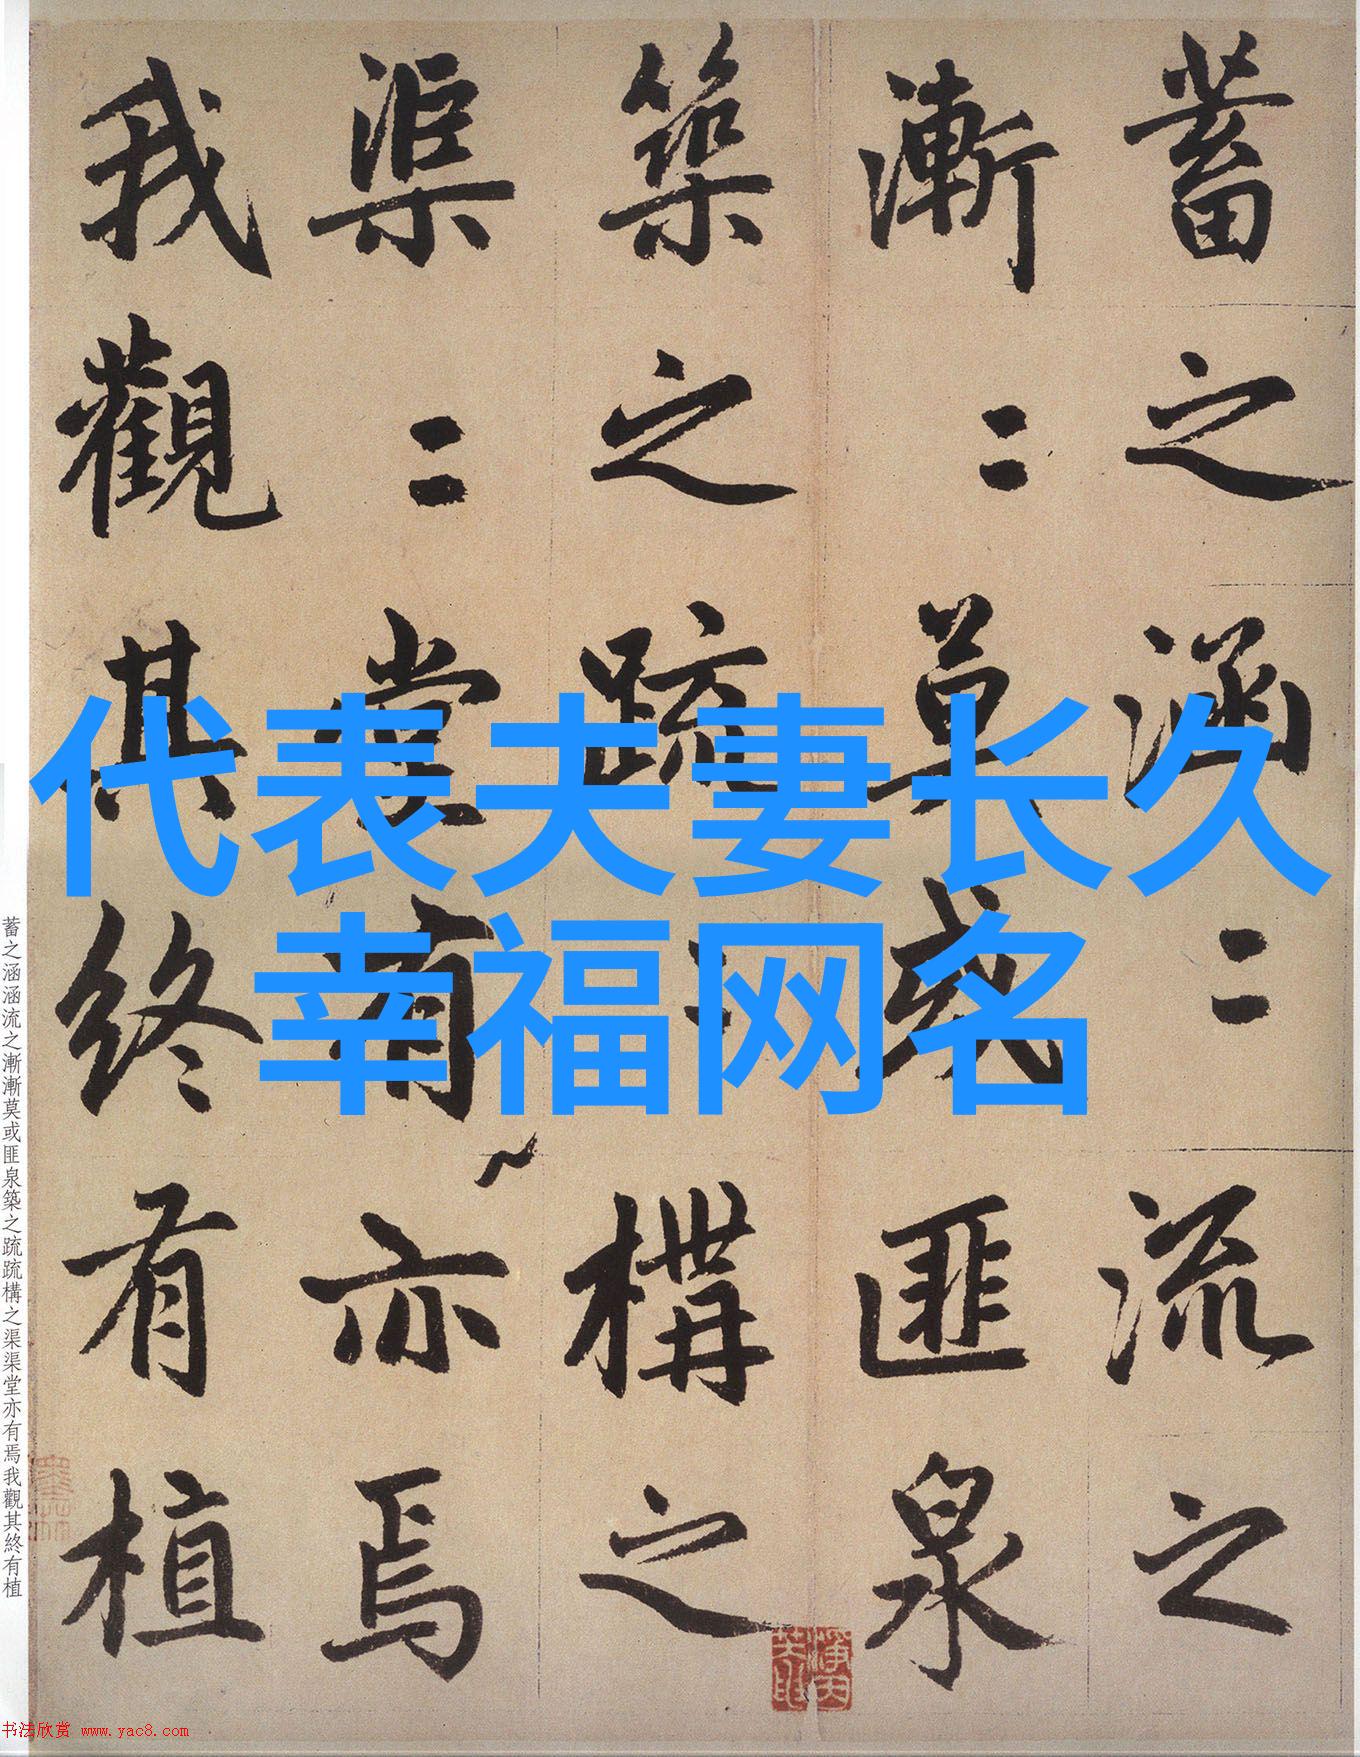 蓄之涵〻流之
漸〻莫或匪泉
築之疏〻構之
渠〻堂有亦焉
我觀其終有植
代表夫妻长久
幸福网名
蓄之涵涵流之漸漸莫或匪泉築之疏疏構之渠渠堂亦有焉我觀其終有植
书法欣赏 www.yac8.com